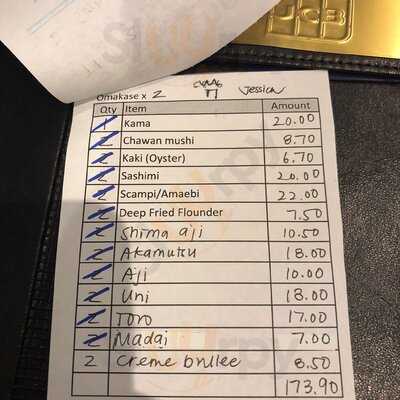 JCB
Omakase x 2 Jessica
Qty Item Amount
1 Kama 20.00
2 Chawan mushi 8.70
2 Kaki (Oyster) 6.70
2 Sashimi 20.00
2 Scampi/Amaebi 22.00
2 Deep Fried Flounder 7.50
2 Shima aji 10.50
2 Akamutsu 18.00
2 Aji 10.00
2 Uni 18.00
2 Toro 17.00
2 Madai 7.00
2 Creme bruleee 8.50
173.90